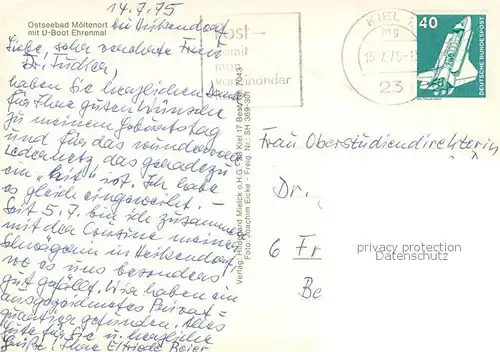 Ostseebad Möltenort
mit U-Boot Ehrenmal
14.7.75
bei Heikendorf
Liebe, sehr verehrte Frau
Dr.
haben Sie herzlichen Dank
für Ihre guten Wünsche
zu meinem Geburtstag
und für das wundervolle
Ledernetz, das geradezu
ein "Hit" ist. Ich habe
es gleich eingeweiht. –
Seit 5.7. bin ich zusammen
mit der Cousine meiner
Schwägerin in Heikendorf,
wo es uns besonders
gut gefällt. Wir haben ein
ausgezeichnetes Privat=
quartier gefunden. Alles
Gute für Sie u. herzliche
Grüße! Ihre Elfriede Beier
Verlag: Helmhard Mielck o.H.G. 23 Kiel 17 Best.
Foto: Joachim Eicke - Freig. Nr.: SH 369-301
Post –
damit
man
voneinander
KIEL 1
mg
15.7.75-
23
40
DEUTSCHE BUNDESPOST
Frau Oberstudiendirektorin
Dr.
6 Fr
Be
privacy protection
Datenschutz